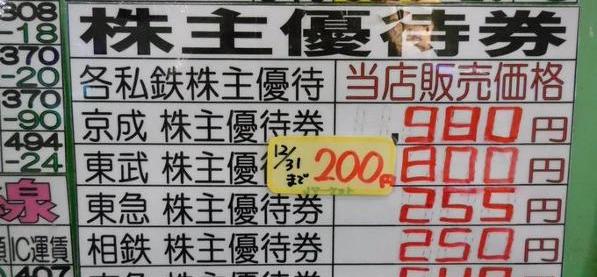 株主優待券
各私鉄株主優待 当店販売価格
京成 株主優待券 980円
東武 株主優待 800円
12/31まで 200円
東急 株主優待券 255円
相鉄 株主優待券 250円
508
-18
370
-20
370
-90
494
-24
線
IC運賃
407